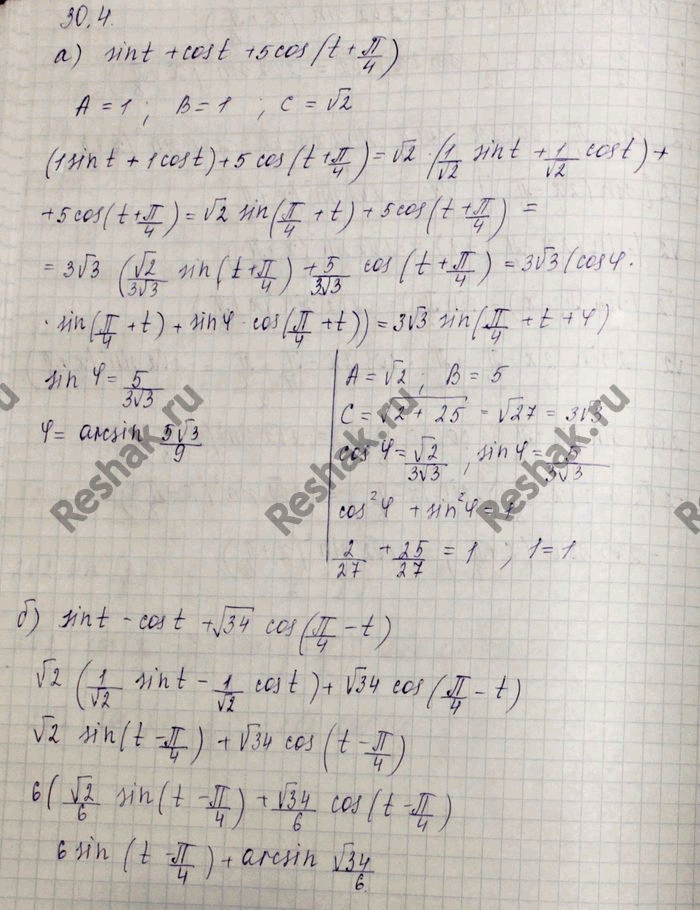 30.4.
а) sint + cost + 5cos(t + π/4)
A = 1 ; B = 1 ; C = √2
(1sint + 1cost) + 5 cos(t + π/4) = √2 · (1/√2 sint + 1/√2 cost) +
+ 5cos(t + π/4) = √2 sin(π/4 + t) + 5cos(t + π/4) =
= 3√3 (√2/3√3 sin(t + π/4) + 5/3√3 cos(t + π/4) = 3√3 (cosφ ·
· sin(π/4 + t) + sinφ · cos(π/4 + t)) = 3√3 sin(π/4 + t + φ)
sin φ = 5/3√3
φ = arcsin 5√3/9
A = √2 ; B = 5
C = √2 + 25 = √27 = 3√3
cos φ = √2/3√3 , sin φ = 5/3√3
cos²φ + sin²φ = 1
2/27 + 25/27 = 1 ; 1 = 1
б) sint - cost + √34 cos(π/4 - t)
√2 (1/√2 sint - 1/√2 cost) + √34 cos(π/4 - t)
√2 sin(t - π/4) + √34 cos(t - π/4)
6(√2/6 sin(t - π/4) + √34/6 cos(t - π/4)
6 sin (t - π/4) + arcsin √34/6
Reshak.ru
Reshak.ru
Reshak.ru